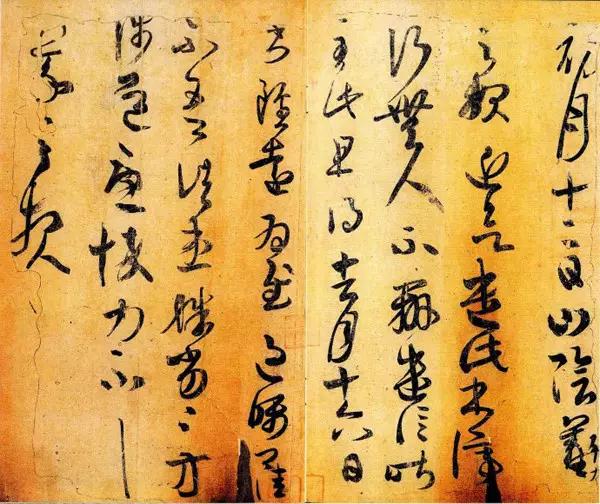 初月十二日山陰羲
之報近欲遣此書停
行無人不辦遣信昨
至此且得去月十六日
書雖遠為慰過囑卿佳
不吾諸患殆劣劣方
陟道憂悴力不具
羲之報